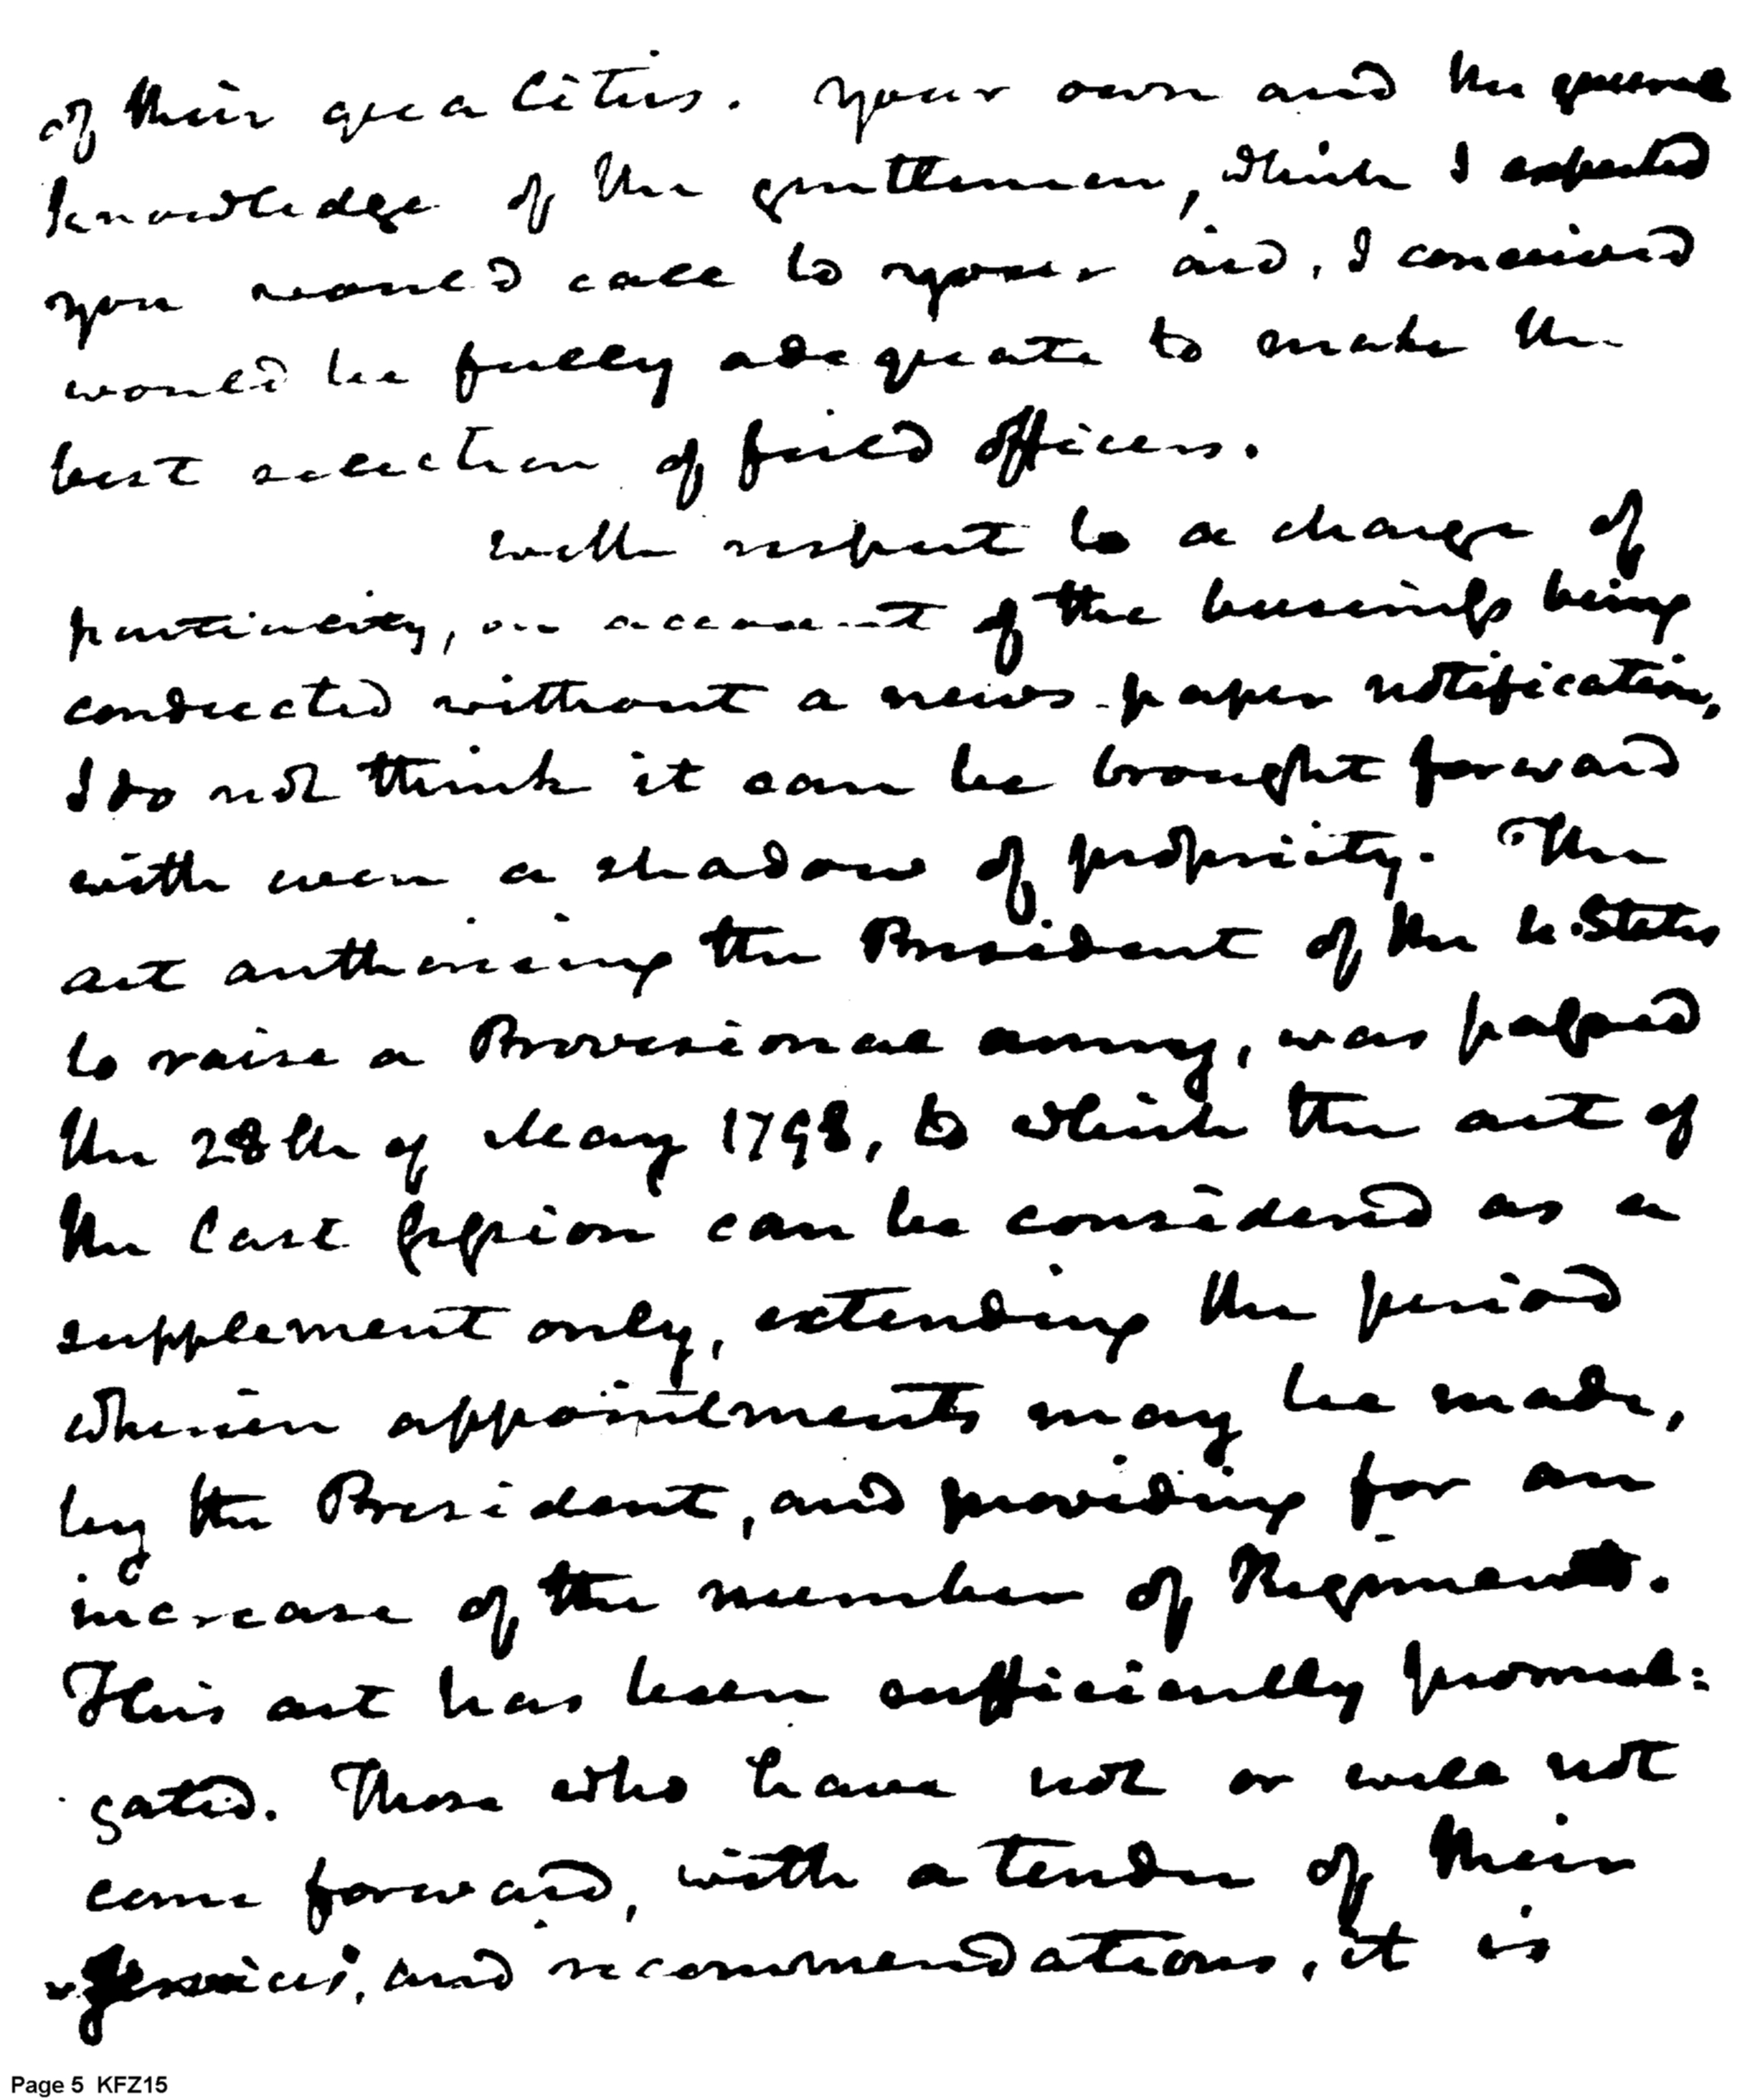 of their qualities. Your own and the general
knowledge of the gentlemen, which I expected
you would call to your aid, I conceived
would be fully adequate to make the
best selection of field officers.
With respect to a charge of
partiality, on account of the business being
conducted without a news-paper notification,
I do not think it can be brought forward
with even a shadow of propriety. The
act authorising the President of the U. States
to raise a Provisional army, was passed
the 28th of May 1798, to which the act of
the last session can be considered as a
supplement only, extending the period
wherein appointments may be made,
by the President, and providing for an
increase of the number of Regiments.
This act has been sufficiently promul:
gated. Those who have not or will not
come forward, with a tender of their
services, and recommendations, it is
Page 5 KFZ15